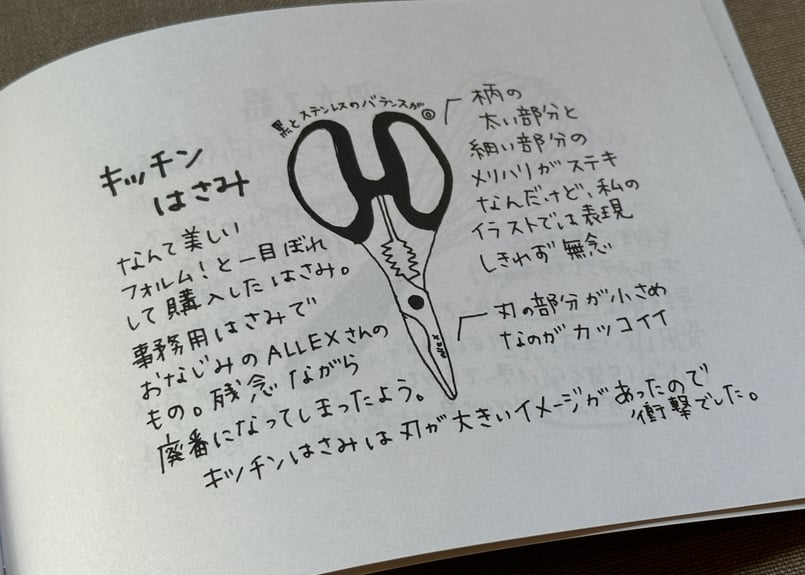 キッチン
はさみ
黒とステンレスのバランスが◎
柄の
太い部分と
細い部分の
メリハリがステキ
なんだけど、私の
イラストでは表現
しきれず無念
なんて美しい
フォルム!と一目ぼれ
して購入したはさみ。
事務用はさみで
おなじみのALLEXさんの
もの。残念ながら
廃番になってしまったよう。
刃の部分が小さめ
なのがカッコイイ
ALLEX
キッチンはさみは刃が大きいイメージがあったので
衝撃でした。